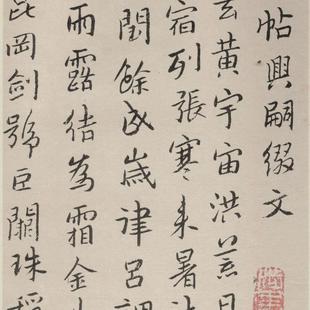 帖興嗣綴文
玄黃宇宙洪荒日
宿列張寒來暑往
閏餘成歲律呂調
雨露結為霜金生
岡劍號巨闕珠稱